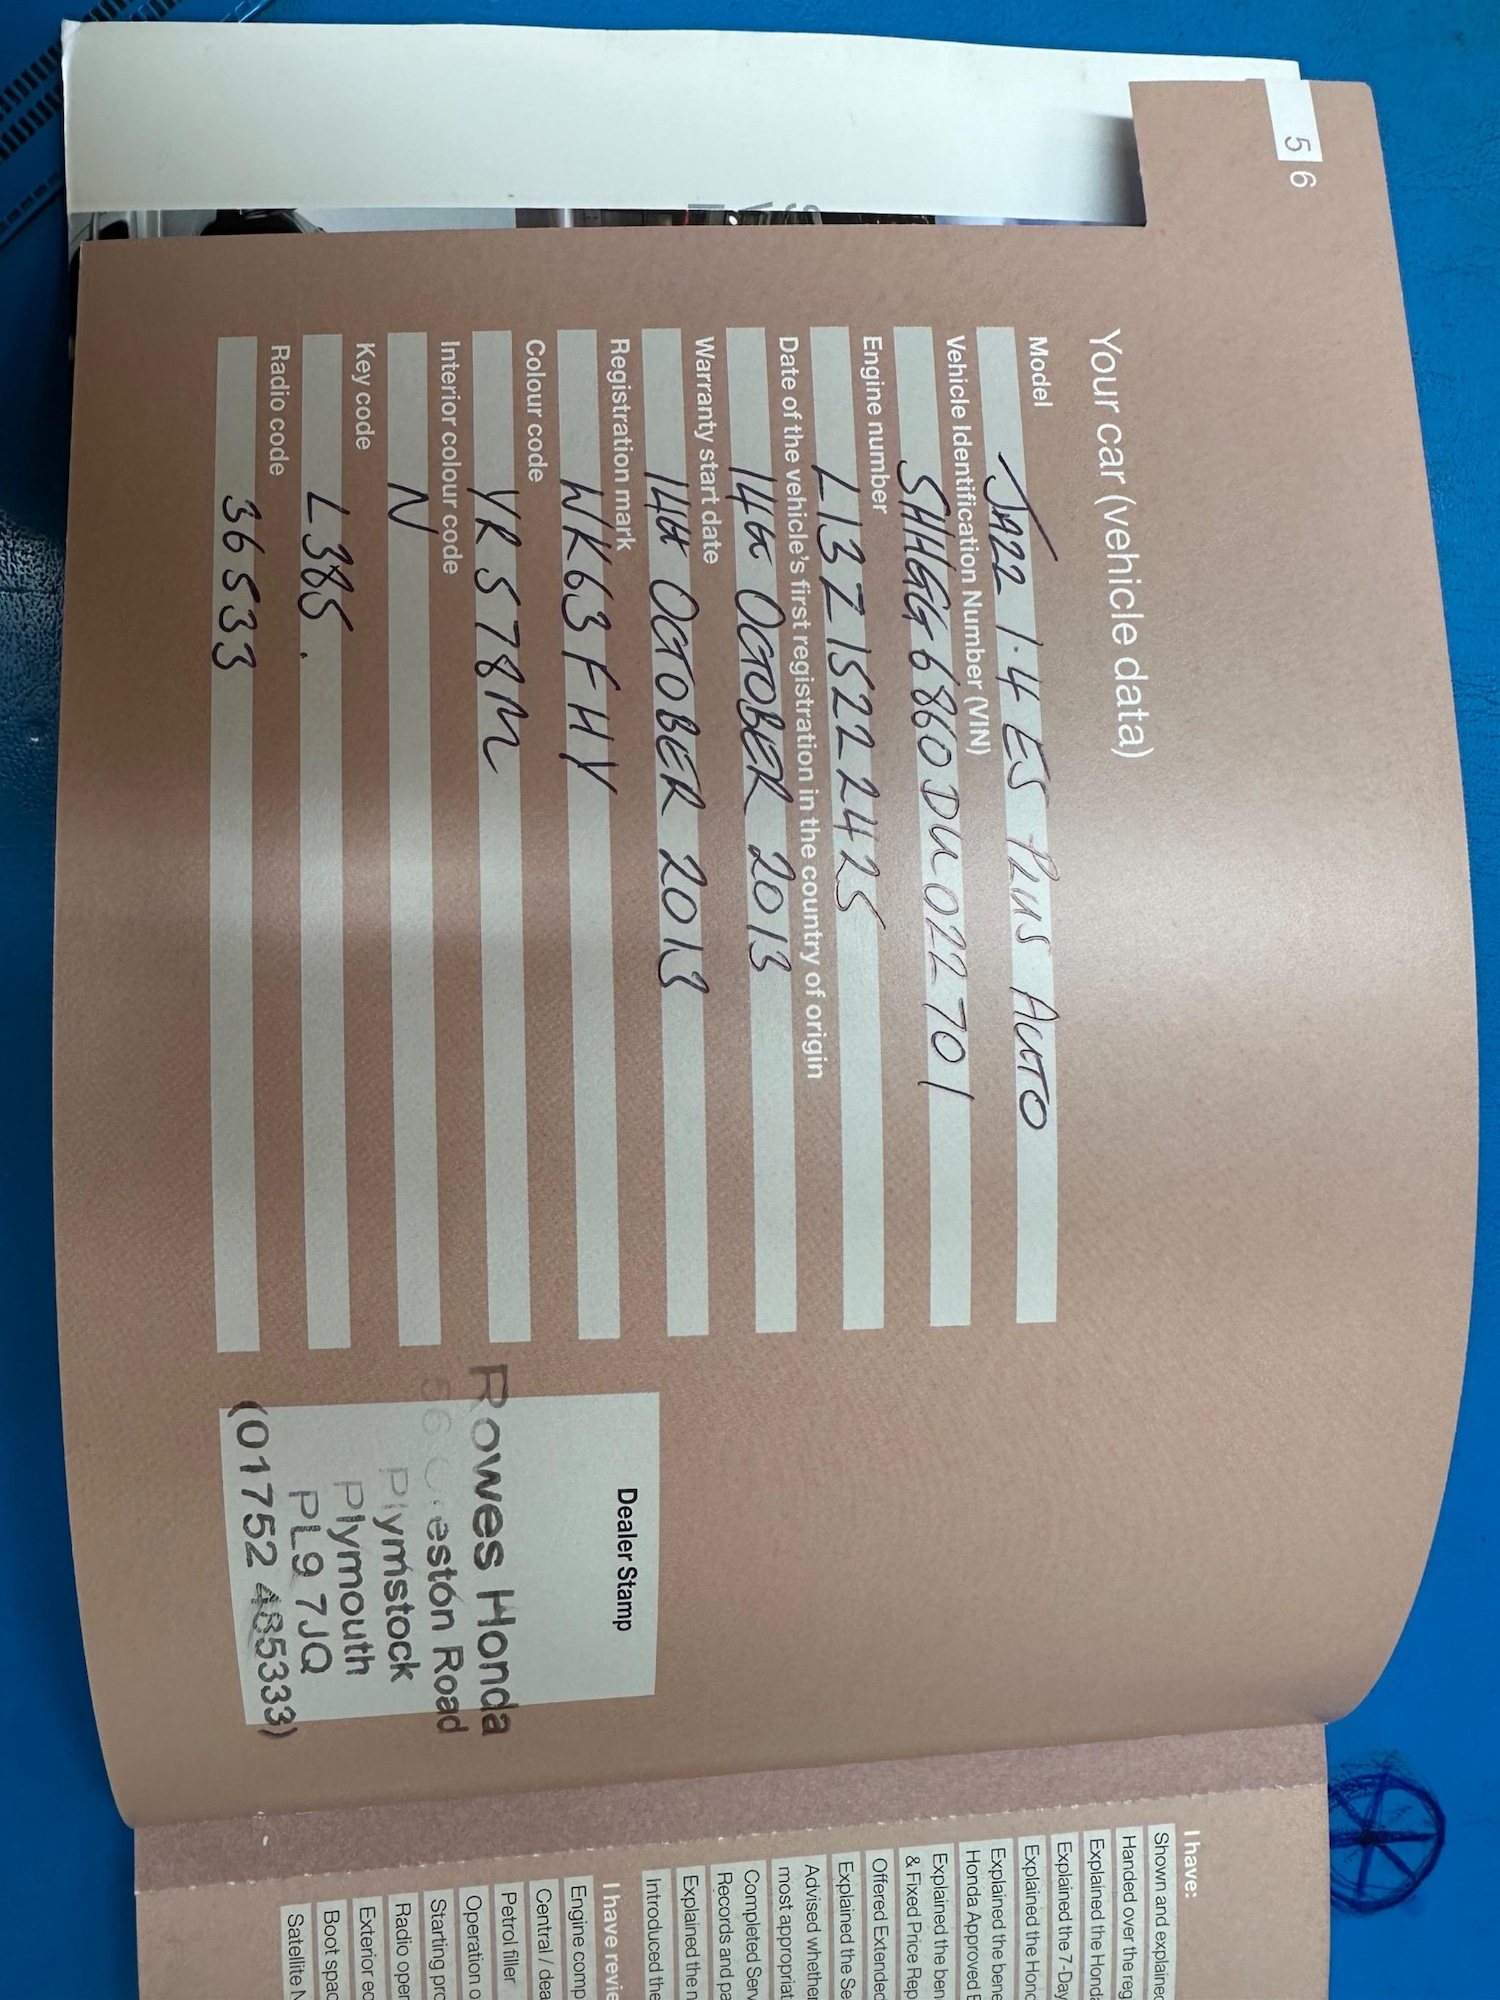 5 6
Your car (vehicle data)
Model
JAZZ 1.4 ES PLUS AUTO
Vehicle Identification Number (VIN)
SHHGG6860DU022701
Engine number
L13Z1522425
Date of the vehicle's first registration in the country of origin
14th OCTOBER 2013
Warranty start date
14th OCTOBER 2013
Registration mark
WK63FHY
Colour code
YR578M
Interior colour code
N
Key code
L385.
Radio code
36533
Dealer Stamp
Rowes Honda
Road
Plymstock
Plymouth
PL9 7JQ
(01752 485333)
I have:
Shown and explained
Handed over the reg
Explained the Honda
Explained the 7-Day
Explained the Hond
Explained the bene
Honda Approved
Explained the ben
& Fixed Price Rep
Offered Extended
Explained the Se
Advised whether
most appropriat
Completed Serv
Records and pa
Explained the n
Introduced the
I have revie
Engine comp
Central / dea
Petrol filler
Operation o
Starting pro
Radio oper
Exterior eq
Boot spac
Satellite N